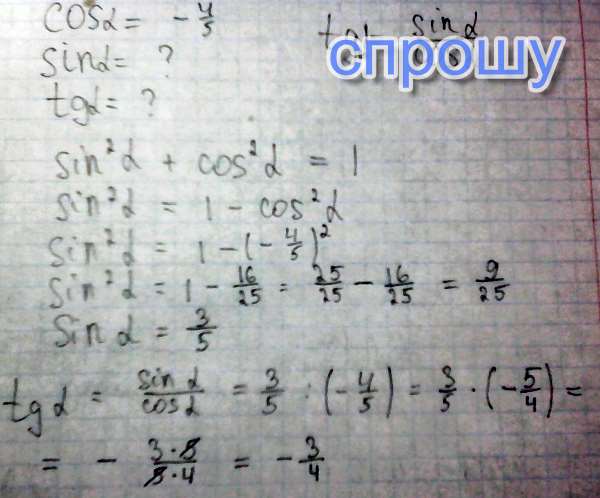 cosα = -4/5
tgα = sinα
спрошу
sinα = ?
tgα = ?
sin²α + cos²α = 1
sin²α = 1 - cos²α
sin²α = 1 - (-4/5)²
sin²α = 1 - 16/25 = 25/25 - 16/25 = 9/25
sin α = 3/5
tgα = sinα/cosα = 3/5 : (-4/5) = 3/5 · (-5/4) =
= - 3·5/5·4 = - 3/4